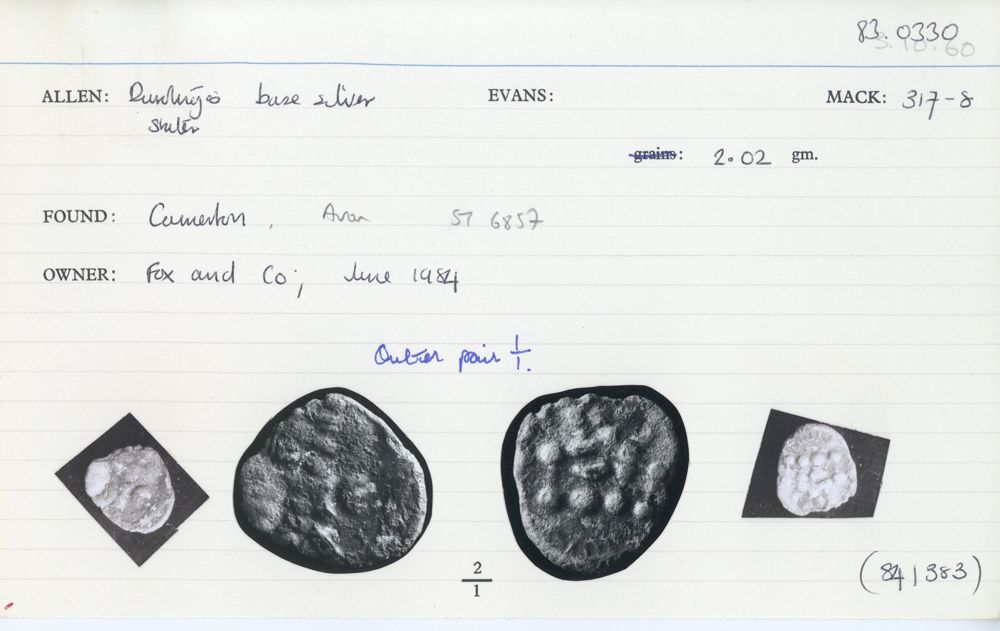 83.0330
5.10.60
ALLEN: Durotriges base silver EVANS: MACK: 317-8
stater
grains: 2.02 gm.
FOUND: Camerton, Avon ST 6857
OWNER: Fox and Co; June 1984
Outer pair 1/1.
2/1
(84/383)